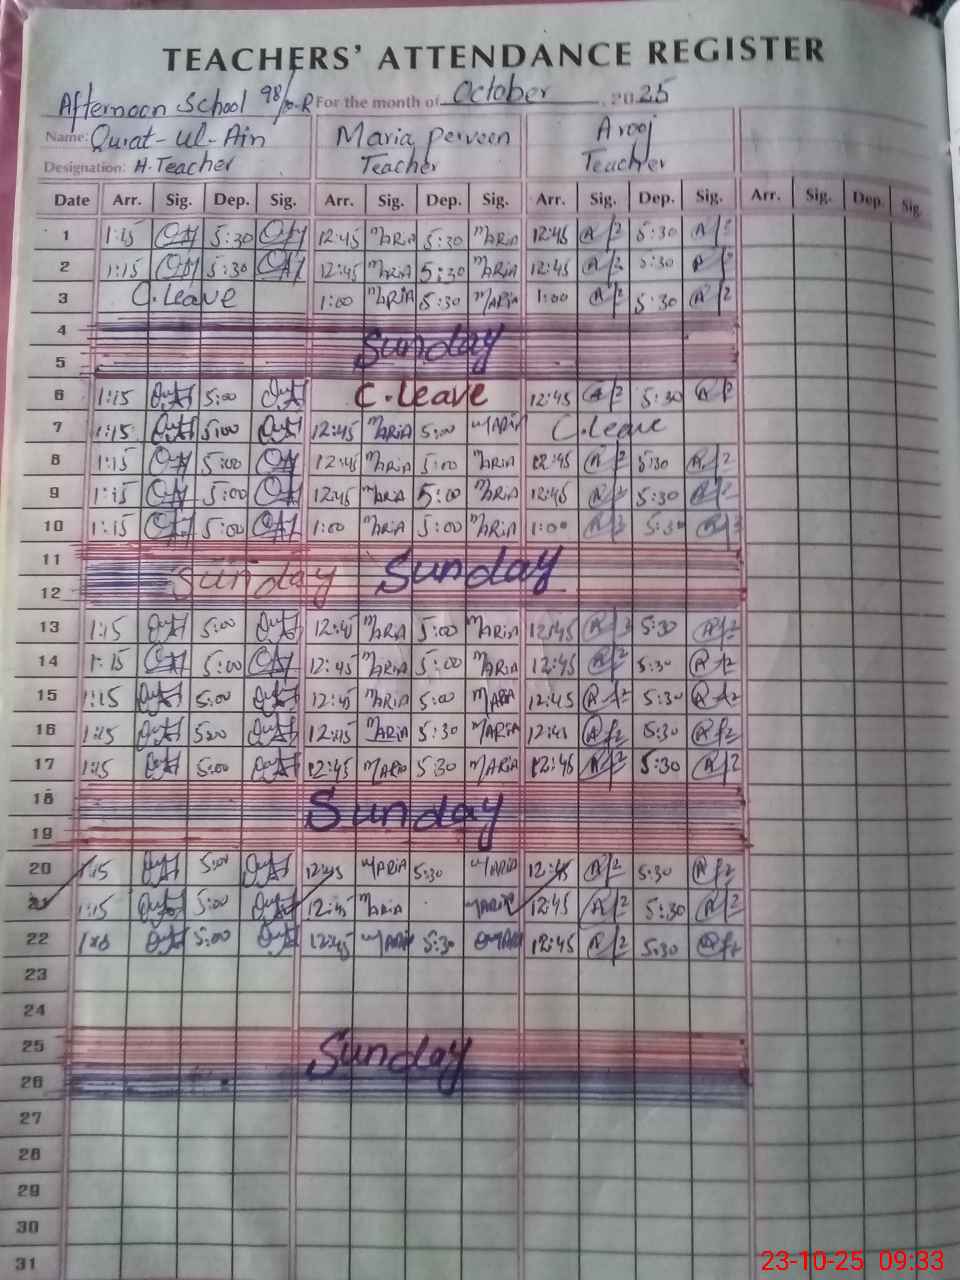 TEACHERS' ATTENDANCE REGISTER
Afternoon School 98/10-R For the month of October, 2025
Name: Qurat-ul-Ain Maria Perveen Arooj
Designation: H.Teacher Teacher Teacher
Date Arr. Sig. Dep. Sig. Arr. Sig. Dep. Sig. Arr. Sig. Dep. Sig. Arr. Sig. Dep. Sig.
1 1:15 5:30 12:45 MARIA 5:30 MARIA 12:45 5:30
2 1:15 5:30 12:45 MARIA 5:30 MARIA 12:45 5:30
3 C.leave 1:00 MARIA 5:30 MARIA 1:00 5:30
4 Sunday
5
6 1:15 5:00 C.leave 12:45 5:30
7 1:15 5:00 12:45 MARIA 5:00 MARIA C.leave
8 1:15 5:00 12:45 MARIA 5:00 MARIA 12:45 5:30
9 1:15 5:00 12:45 MARIA 5:00 MARIA 12:45 5:30
10 1:15 5:00 1:00 MARIA 5:00 MARIA 1:00 5:30
11 Sunday Sunday
12
13 1:15 5:00 12:45 MARIA 5:00 MARIA 12:45 5:30
14 1:15 5:00 12:45 MARIA 5:00 MARIA 12:45 5:30
15 1:15 5:00 12:45 MARIA 5:00 MARIA 12:45 5:30
16 1:15 5:00 12:45 MARIA 5:30 MARIA 12:45 5:30
17 1:15 5:00 12:45 MARIA 5:30 MARIA 12:45 5:30
18 Sunday
19
20 1:15 5:00 12:45 MARIA 5:30 MARIA 12:45 5:30
21 1:15 5:00 12:45 MARIA MARIA 12:45 5:30
22 5:00 12:45 MARIA 5:30 12:45 5:30
23
24
25 Sunday
26
27
28
29
30
31
23-10-25 09:33